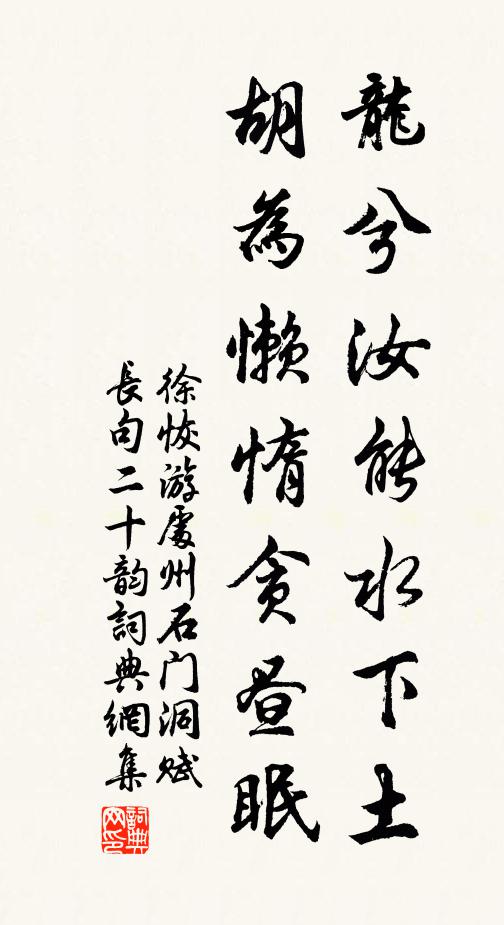 龍兮汝能水下土
胡為懶惰貪昼眠
徐恢游處州石门洞赋
長句二十韵詞典網集
詞典网印